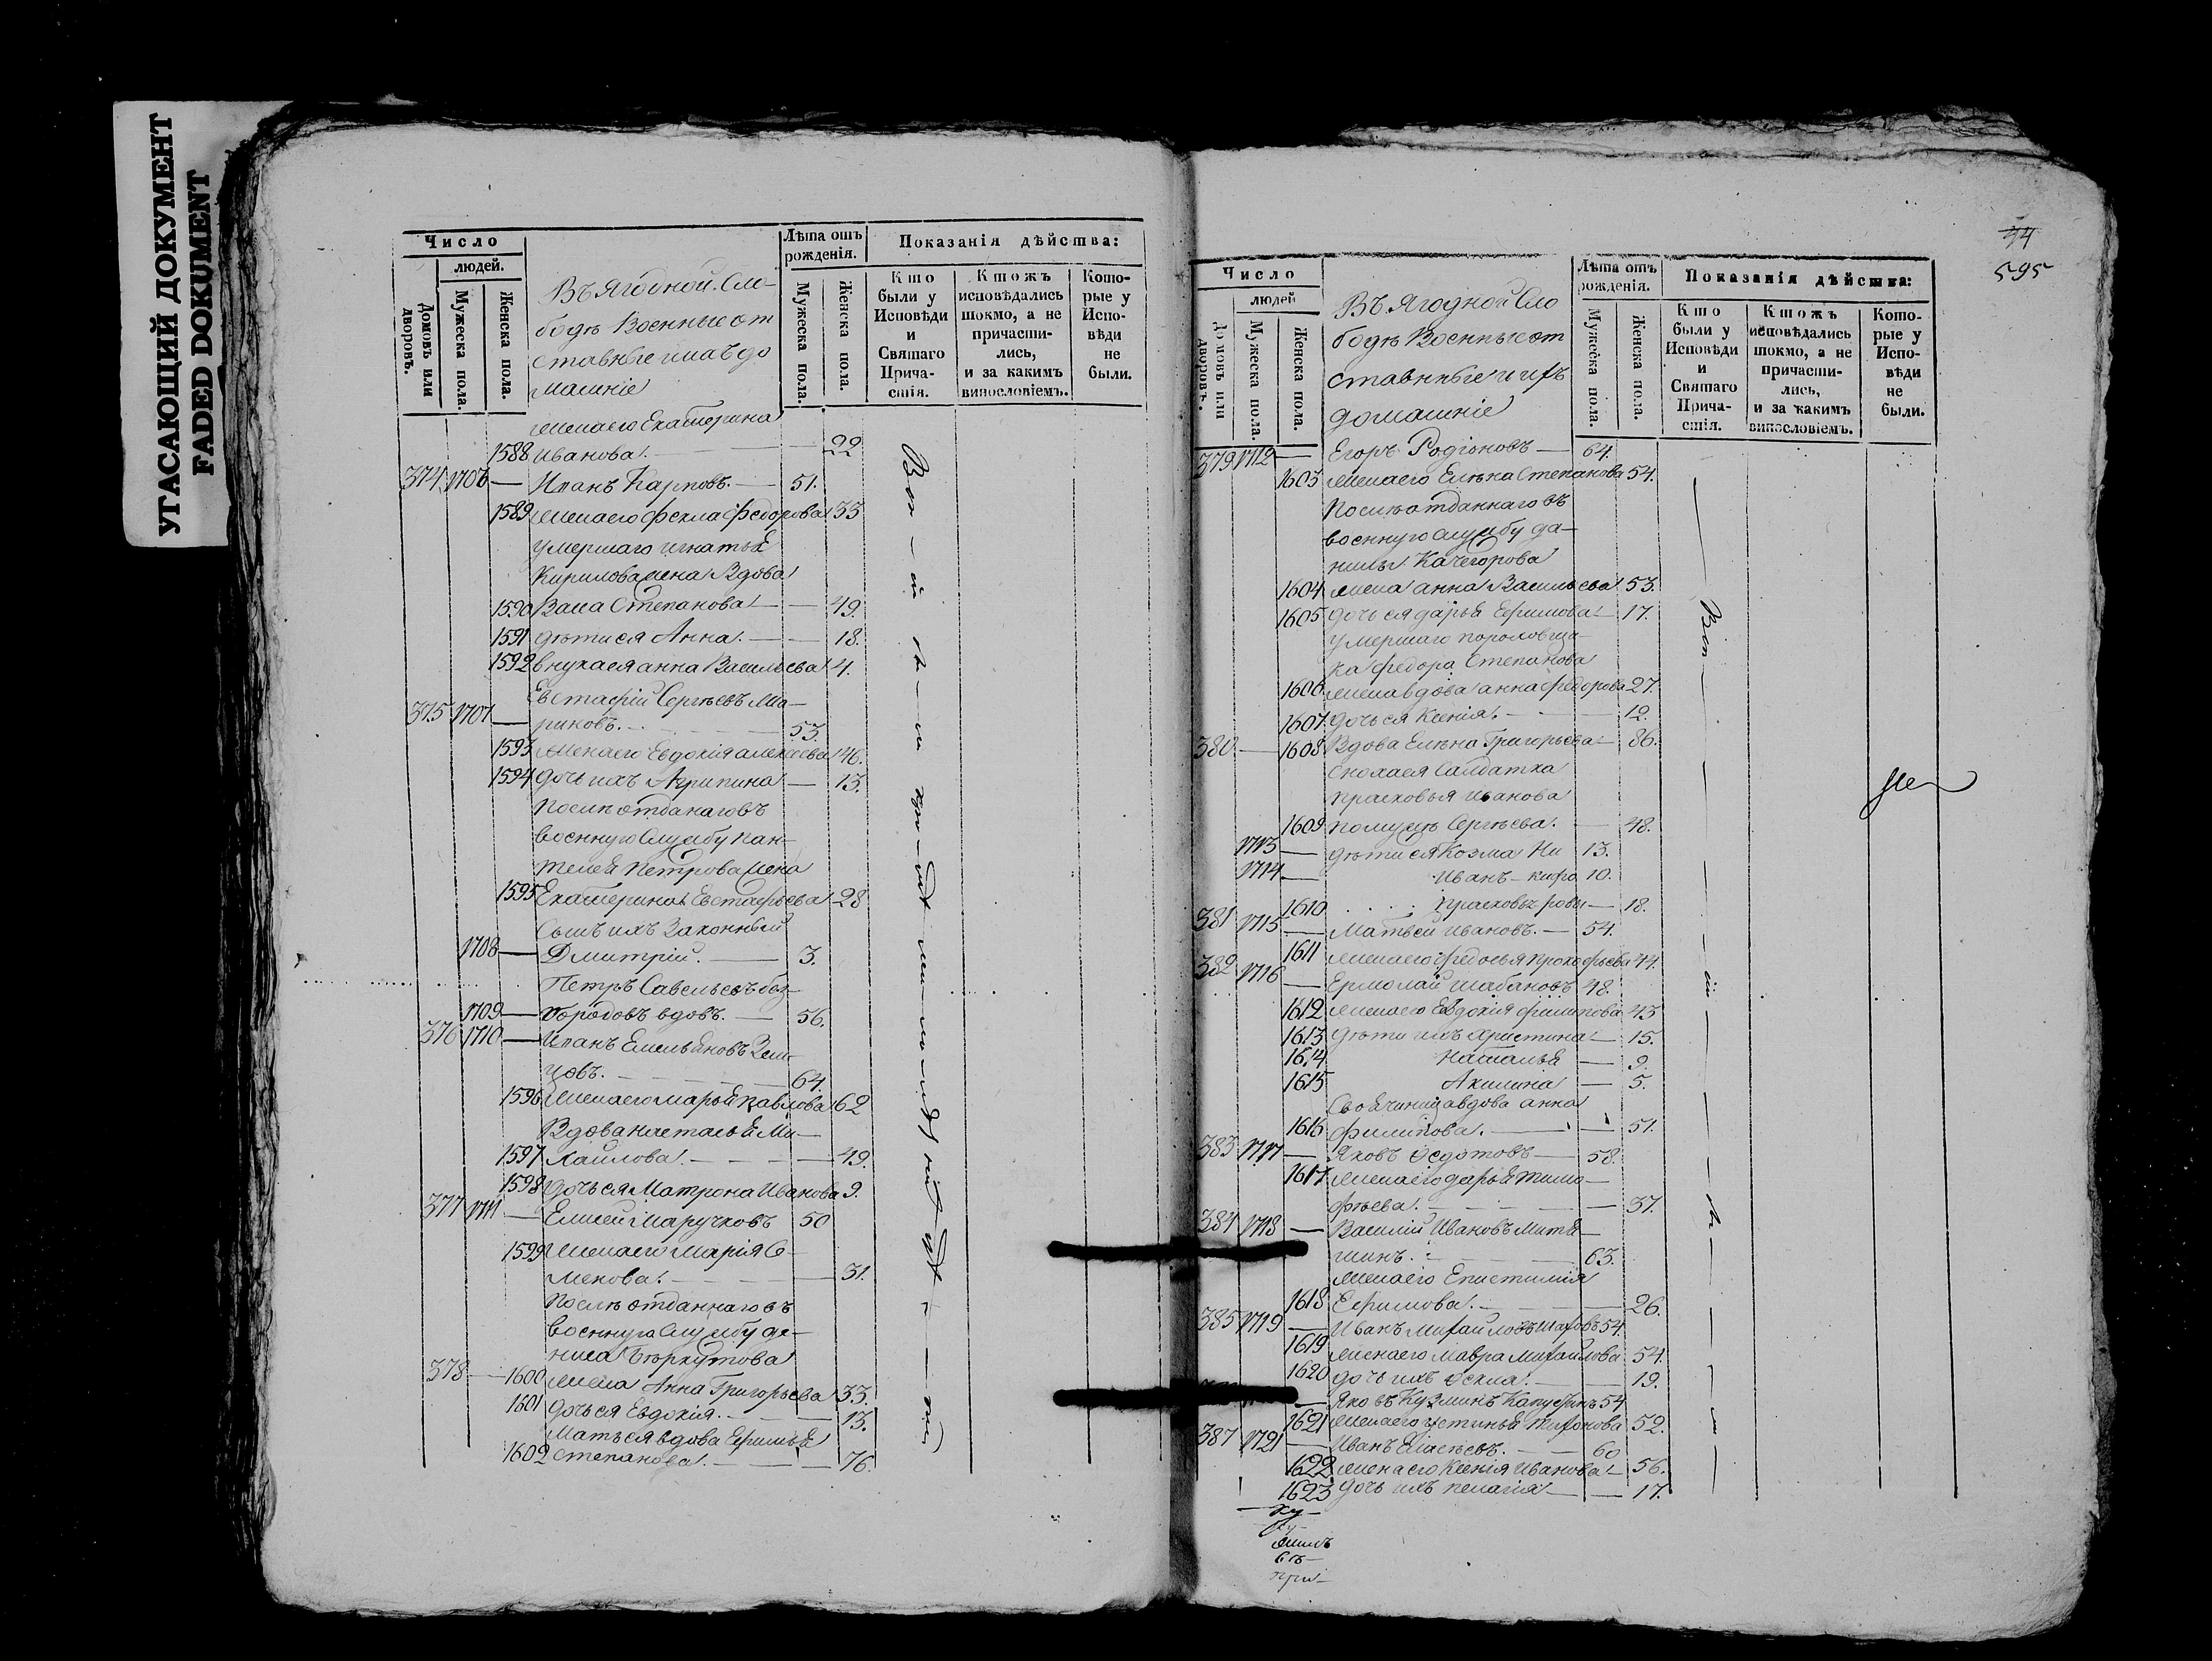 УГАСАЮЩИЙ ДОКУМЕНТ
FADED DOKUMENT
Число
людей.
Домовъ или дворовъ.
Мужеска пола.
Женска пола.
Въ Ягодной Сло-
бодѣ Военные от
ставные и ихъ до
машніе
Лѣта отъ рожденія.
Мужеска пола.
Женска пола.
Показанія дѣйства:
Кто были у Исповѣди и Святаго Причастія.
Ктожъ исповѣдались токмо, а не причастились, и за какимъ винословіемъ.
Которые у Исповѣди не были.
жена его Екатерина
1588 Иванова. — 22
374 1706 — Иванъ Карповъ. — 51.
1589 жена его Фекла Федорова 33
умершаго игнатья
Кирилова жена Вдова
1590 Степанова — 49.
1591 дѣти ея Анна. — 18.
1592 внука ея анна Васильева 4.
Евстафій Сергѣевъ Ма-
375 1707 — риновъ. — 53.
1593 Жена его Евдокія алексѣева 46.
1594 дочь ихъ Агрипина — 13.
послѣ отданаго въ
военную Службу пан-
телея Петрова жена
1595 Екатерина Евстафьева 28
Сынъ ихъ Законный
1708 — Дмитрій. — 3.
Петръ Савельевъ без-
1709 — бородовъ вдовъ. — 56.
376 1710 — Иванъ Емельяновъ Зем-
цовъ. — 64.
1596 жена его марья павлова 62
Вдова наталья Ми-
1597 хайлова. — 49.
1598 дочь ея Матрона Иванова 9.
377 1711 — Елисей Маручковъ 50
1599 жена его Марія Се-
менова. — 31.
послѣ отданнаго въ
военную Службу де-
ниса
378 — 1600 жена Анна Григорьева 33.
1601 дочь ея Евдокія. — 13.
Мать ея вдова Ефимья
1602 Степанова. — 76.
94
595
Число
людей
Домовъ или дворовъ.
Мужеска пола.
Женска пола.
Въ Ягодной Сло
бодѣ Военные от
ставные и ихъ
домашніе
Лѣта отъ рожденія.
Мужеска пола.
Женска пола.
Показанія дѣйства:
Кто были у Исповѣди и Святаго Причастія.
Ктожъ исповѣдались токмо, а не причастились, и за какимъ винословіемъ.
Которые у Исповѣди не были.
379 1712 — Егоръ Родіоновъ — 64.
1603 жена его Елѣна Степанова 54.
послѣ отданнаго въ
военную службу да-
нилы Качегорова
1604 жена анна Васильева 53.
1605 дочь ея дарья Ефимова — 17.
умершаго пороховщи-
ка федора Степанова
1606 жена вдова анна федорова 27.
1607 дочь ея Ксенія. — 12.
380 — 1608 Вдова Елѣна Григорьева — 86.
Сноха ея Салдатка
прасковья Иванова
1609 по мужѣ Сергѣева. — 48.
1713 — дѣти ея Козма Ни 13.
1714 — Иванъ — кифо 10.
1610 прасковья ровы — 18.
381 1715 — Матвей ивановъ. — 54.
1611 жена его федосья прокофьева 44.
382 1716 — Ермолай шабановъ 48.
1612 жена его Евдокія филипова 43
1613 дѣти ихъ христина — 15.
1614 наталья — 9.
1615 Акилина — 5.
Своячиница вдова анна
1616 филипова. — 51.
383 1717 — Яковъ Федотовъ — 58.
1617 жена его дарья тимо-
фѣева. — 37.
384 1718 — Василій Ивановъ Митя-
шинъ. — 63.
жена его Епистимия
1618 Ефимова. — 26.
385 1719 — Иванъ Михайловъ 54.
1619 жена его Мавра Михайлова 54.
1620 дочь ихъ Фекла. — 19.
— Яковъ Кузминъ 54
1621 жена его устинья Тихонова 52.
387 1721 — Иванъ — 60
1622 жена его Ксенія Иванова — 56.
1623 дочь ихъ пелагія — 17.